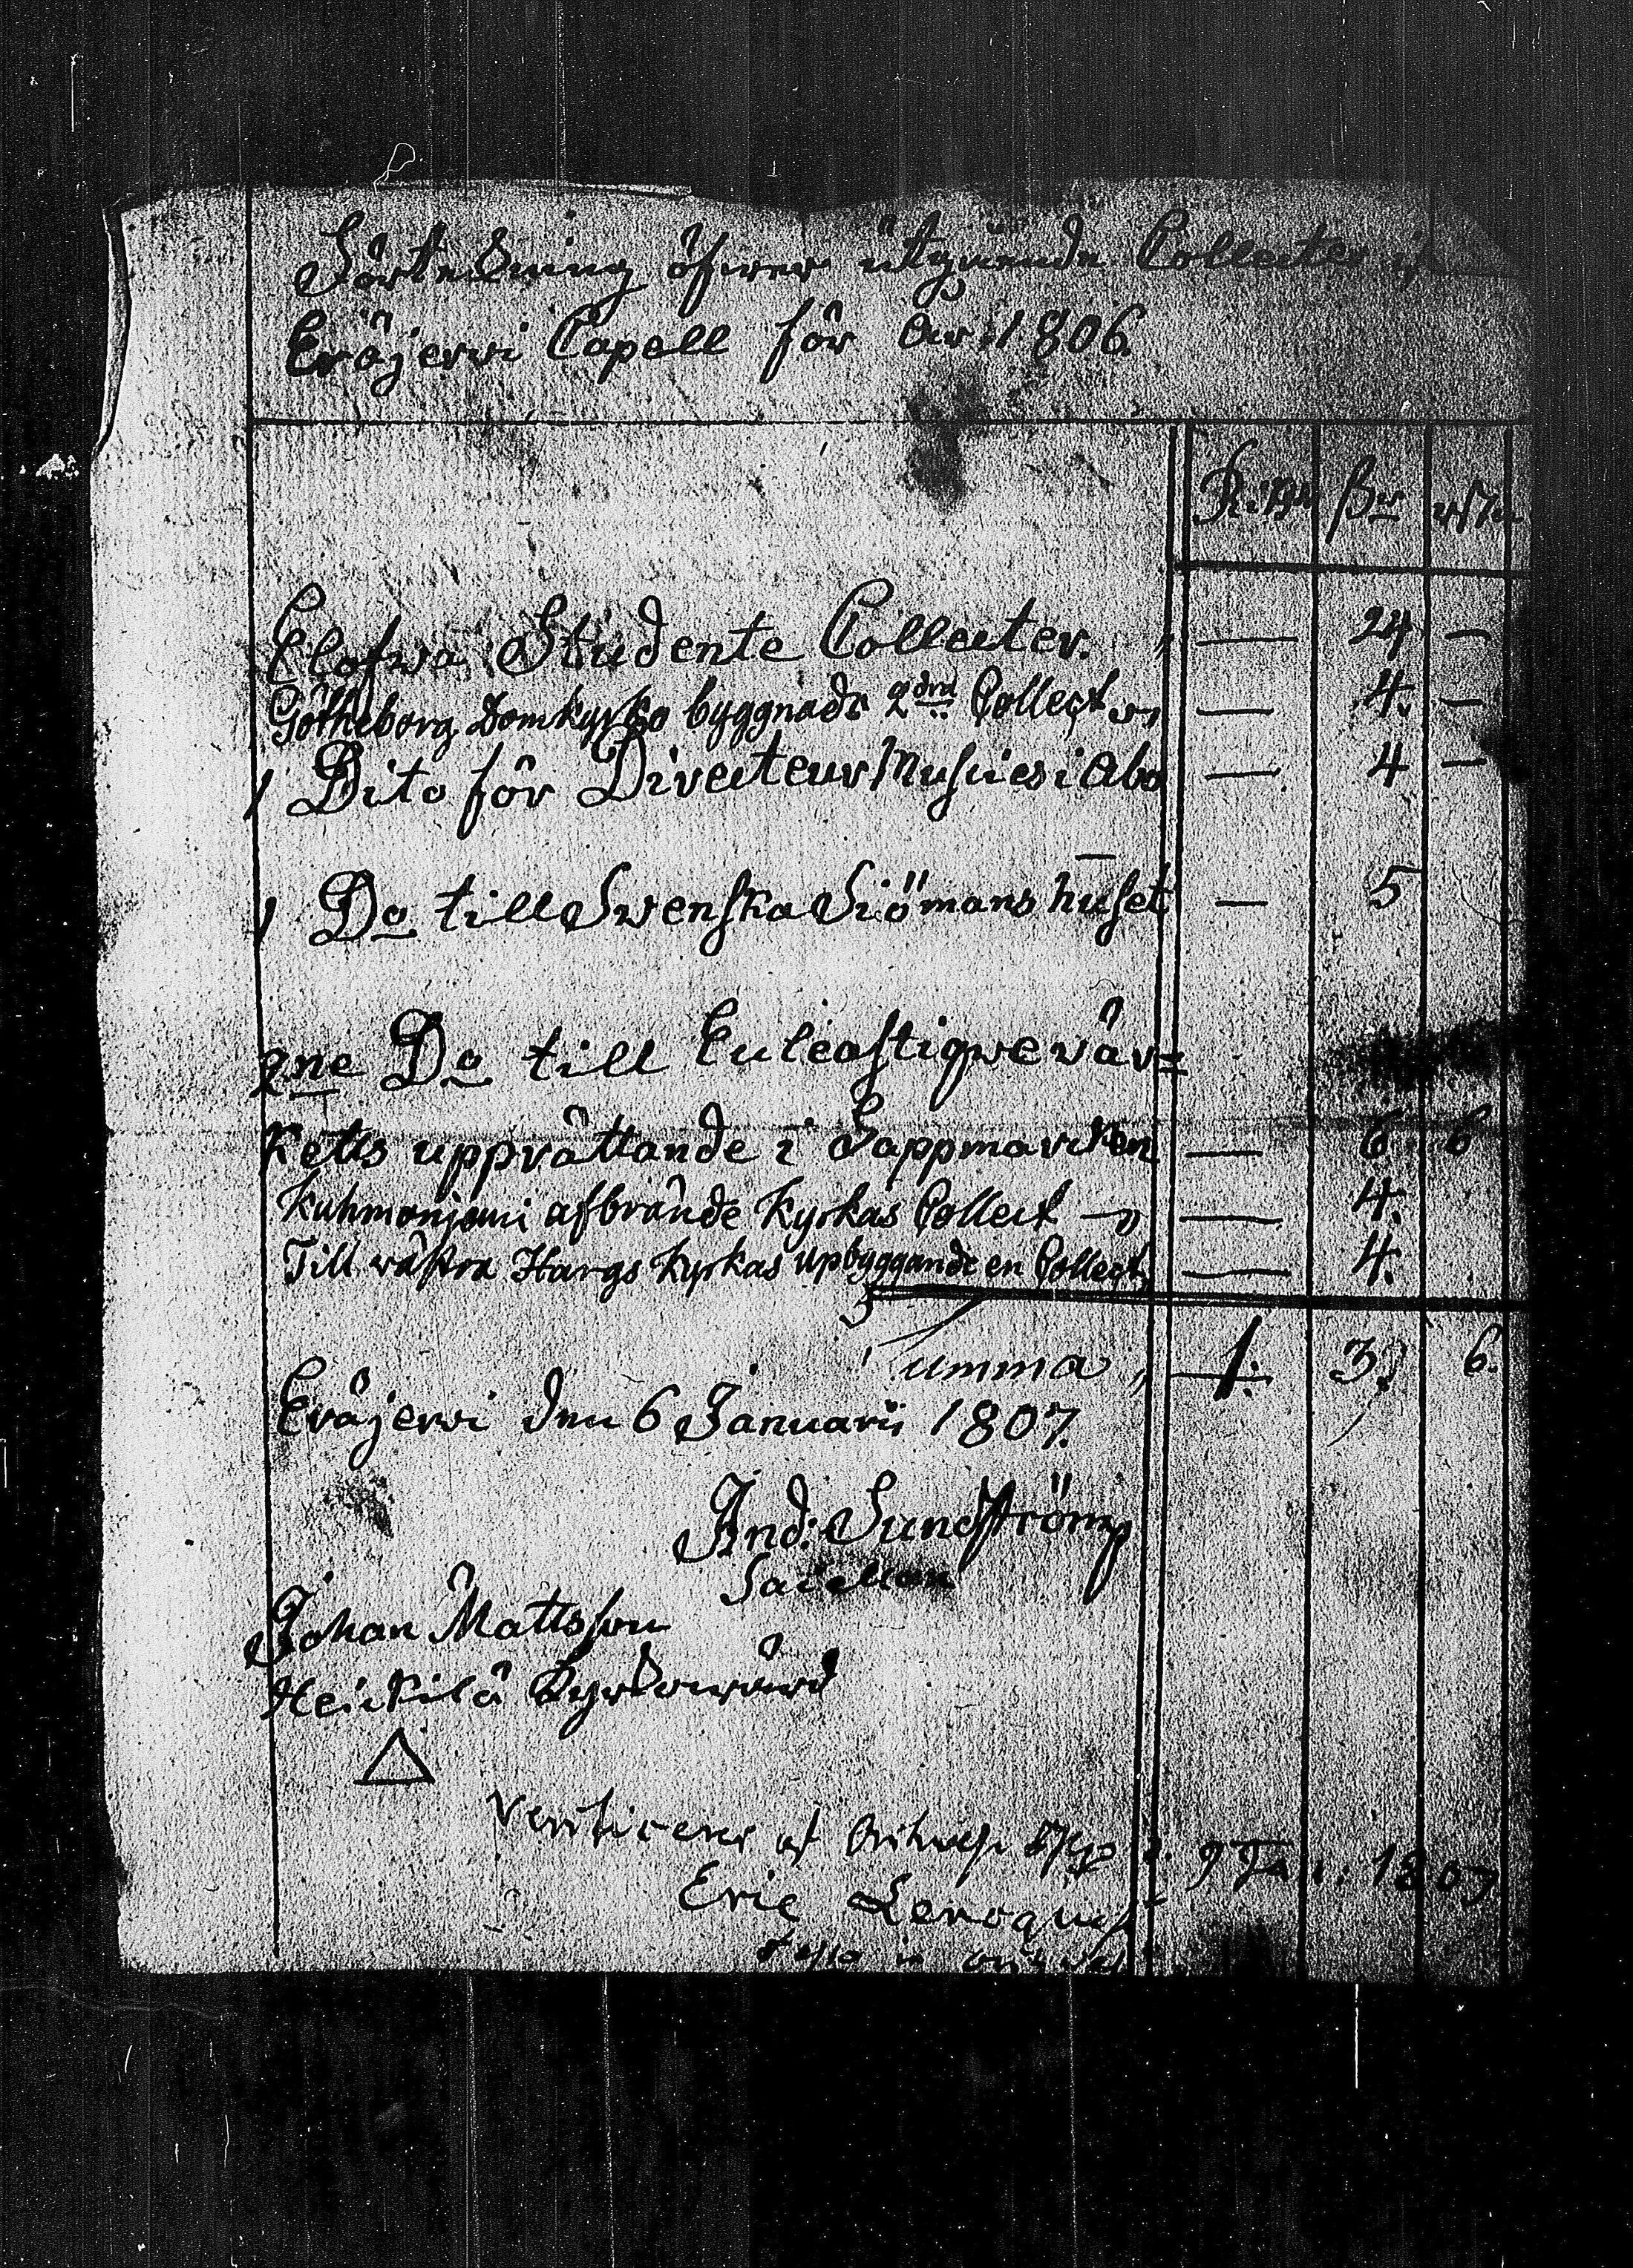 Förteckning öfwer utgående Collecter i
Eräjerwi Capell för År 1806.
R:dr ßr
Elofwa Studente Collecter. — 24 —
Götheborg Domkyrko byggnads 2dra Collect — 4. —
1 Dito för Directeur Musices i Åbo — 4 —
1 Do till Swenska Siömans huset — 5
2ne Do till Ecleastiqwe vär=
Ketts upprättande i Lappmarcken — 6 6
Kuhmonjemi afbrände Kyrkas Collect — 4.
Till wästra Hargs Kyrkas Upbyggande en Collect — 4.
Summa 1: 3. 6.
Eräjerwi den 6 Januarii 1807.
And: Sundström
Sacellan
Johan Mattsson
Heickilä Kyrkowärd
Verificerar af 9 Jan: 1807
Eric Lenqvist